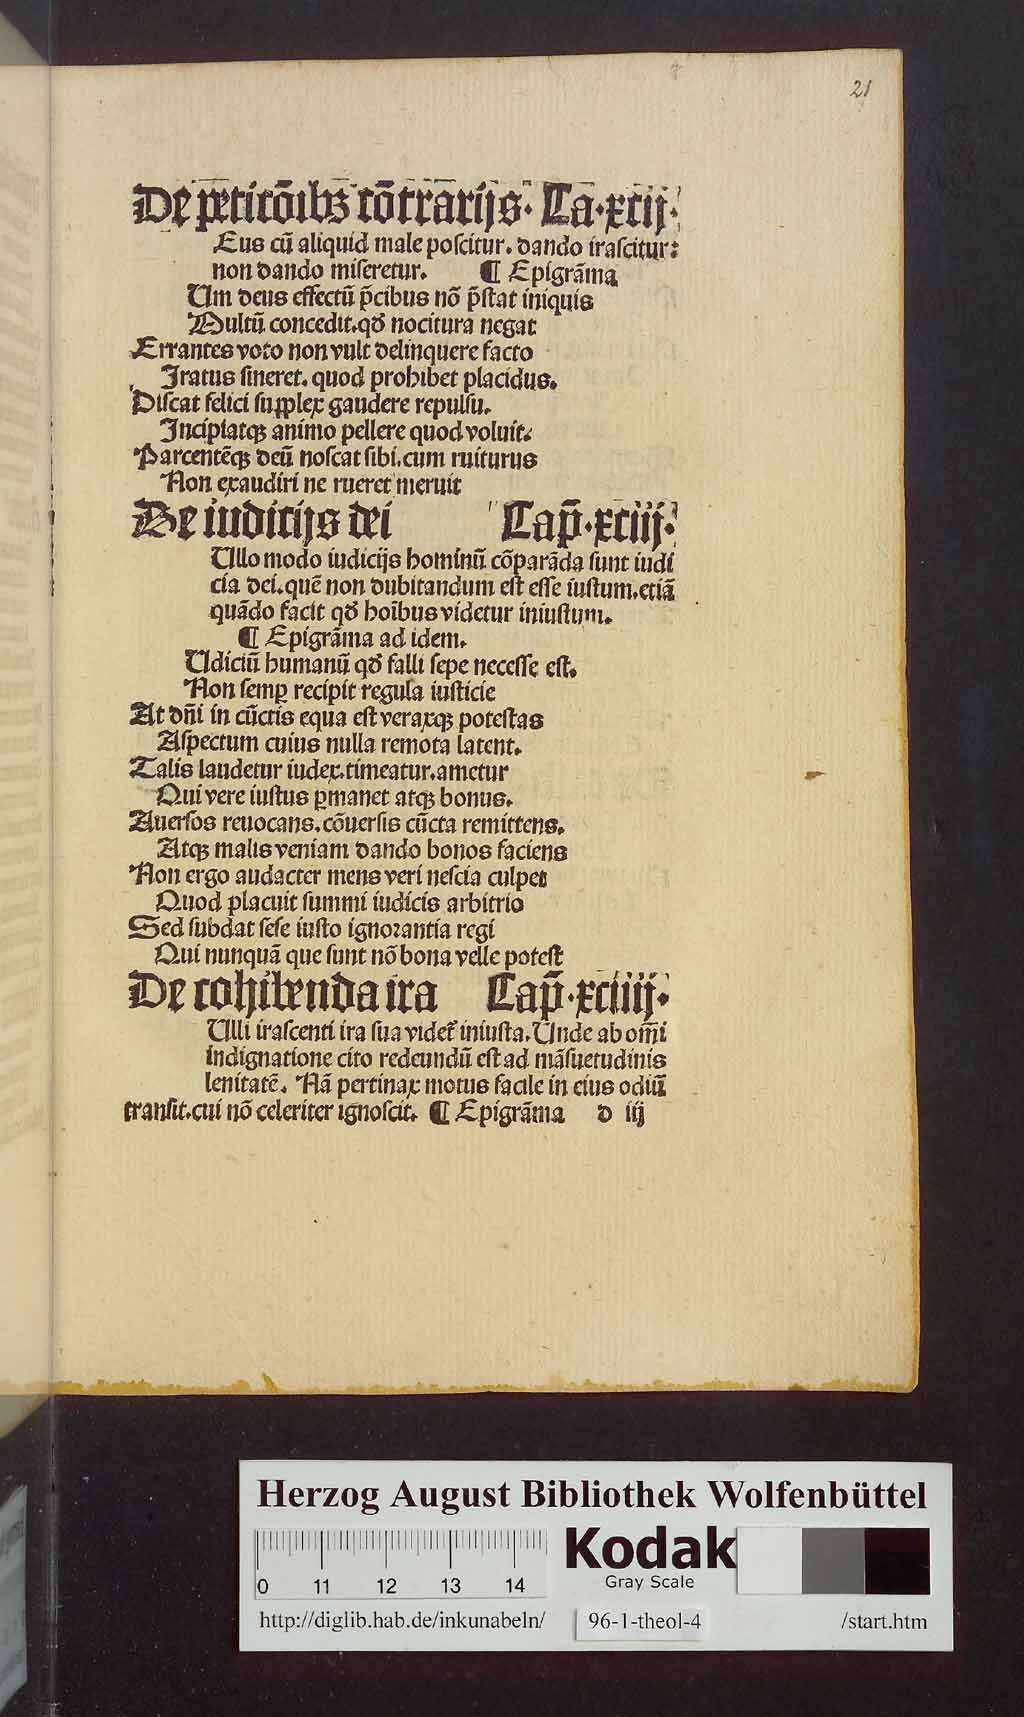 21
De petitõibꝫ cõtrarijs. Ca.xcij.
Eus cũ aliquid male poscitur. dando irascitur:
non dando miseretur. ¶ Epigrãma
Um deus effectũ p̃cibus nõ p̃stat iniquis
Multũ concedit. qď nocitura negat
Errantes voto non vult delinquere facto
Iratus sineret. quod prohibet placidus.
Discat felici supplex gaudere repulsu.
Incipiatqꝫ animo pellere quod voluit.
Parcentẽqꝫ deũ noscat sibi. cum ruiturus
Non exaudiri ne rueret meruit
De iudicijs dei Cap̃.xciij.
Ullo modo iudicijs hominũ cõparãda sunt iudi
cia dei. quẽ non dubitandum est esse iustum. etiã
quãdo facit qď hoĩbus videtur iniustum.
¶ Epigrãma ad idem.
Udiciũ humanũ qď falli sepe necesse est.
Non semꝑ recipit regula iusticie
At dñi in cũctis equa est veraxqꝫ potestas
Aspectum cuius nulla remota latent.
Talis laudetur iudex. timeatur. ametur
Qui vere iustus ꝑmanet atqꝫ bonus.
Auersos reuocans. cõuersis cũcta remittens.
Atqꝫ malis veniam dando bonos faciens
Non ergo audacter mens veri nescia culpet
Quod placuit summi iudicis arbitrio
Sed subdat sese iusto ignorantia regi
Qui nunquã que sunt nõ bona velle potest
De cohibenda ira Cap̃.xciiij.
Ulli irascenti ira sua videt᷑ iniusta. Unde ab om̃i
indignatione cito redeundũ est ad mãsuetudinis
lenitatẽ. Nã pertinax motus facile in eius odiũ
transit. cui nõ celeriter ignoscit. ¶ Epigrãma d iij
Herzog August Bibliothek Wolfenbüttel
0 11 12 13 14
Kodak
Gray Scale
http://diglib.hab.de/inkunabeln/ 96-1-theol-4 /start.htm